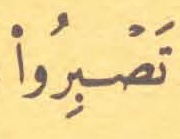 تَصْبِرُواْ